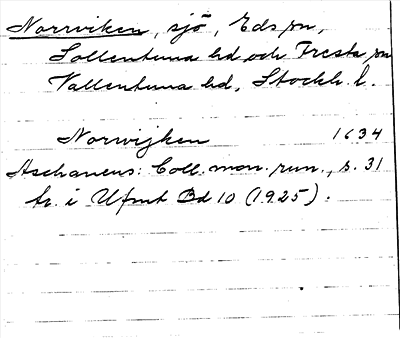 Norrviken, sjö, Eds sn,
Sollentuna hd och Fresta sn
Vallentuna hd, Stockh. l.
Norwijken 1634
Aschaneus: Coll. mon. run., s. 31
tr. i Ufmt Bd 10 (1925).